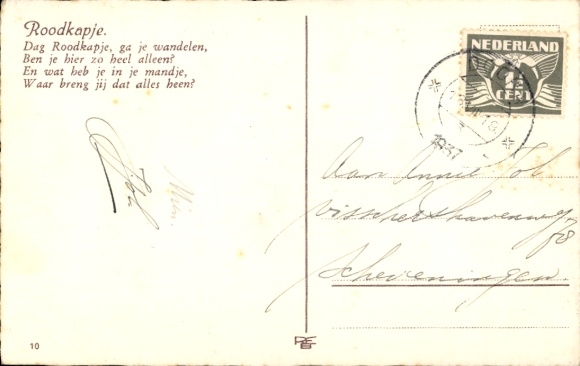 Roodkapje.
Dag Roodkapje, ga je wandelen,
Ben je hier zo heel alleen?
En wat heb je in je mandje,
Waar breng jij dat alles heen?
NEDERLAND
1½
CENT
1937
Aan Annie Tol
Visschershavenweg
58
Scheveningen.
Tol
10